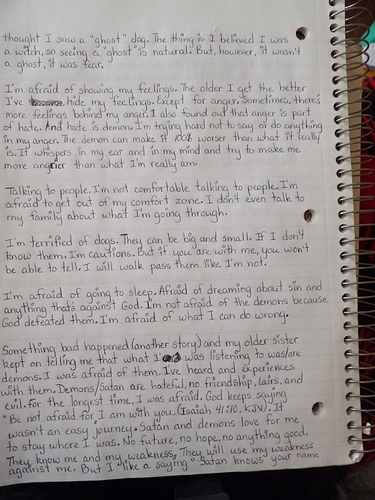 thought I saw a "ghost" dog. The thing is I believed I was
a witch, so seeing a "ghost" is natural. But, however, it wasn't
a ghost, it was fear.
I'm afraid of showing my feelings. The older I get the better
I've hide my feelings. Except for anger. Sometimes, there's
more feelings behind my anger. I also found out that anger is part
of hate. And hate is demon. I'm trying hard not to say or do anything
in my anger. The demon can make it 100% worser than what it really
is. It whispers in my ear and in my mind and try to make me
more angrier than what I'm really am.
Talking to people. I'm not comfortable talking to people. I'm
afraid to get out of my comfort zone. I don't even talk to
my family about what I'm going through.
I'm terrified of dogs. They can be big and small. If I don't
know them, I'm cautions. But if you are with me, you won't
be able to tell. I will walk pass them like I'm not.
I'm afraid of going to sleep. Afraid of dreaming about sin and
anything that's against God. I'm not afraid of the demons because
God defeated them. I'm afraid of what I can do wrong.
Something bad happened (another story) and my older sister
kept on telling me that what I was listening to was/are
demons. I was afraid of them. I've heard and experiences
with them. Demons/Satan are hateful, no friendship, lairs, and
evil. for the longest time, I was afraid. God keeps saying
"Be not afraid for I am with you. (Isaiah 41:10, KJV). It
wasn't an easy journey. Satan and demons love for me
to stay where I was. No future, no hope, no anything good.
They know me and my weakness. They will use my weakness
against me. But I like a saying "Satan knows your name